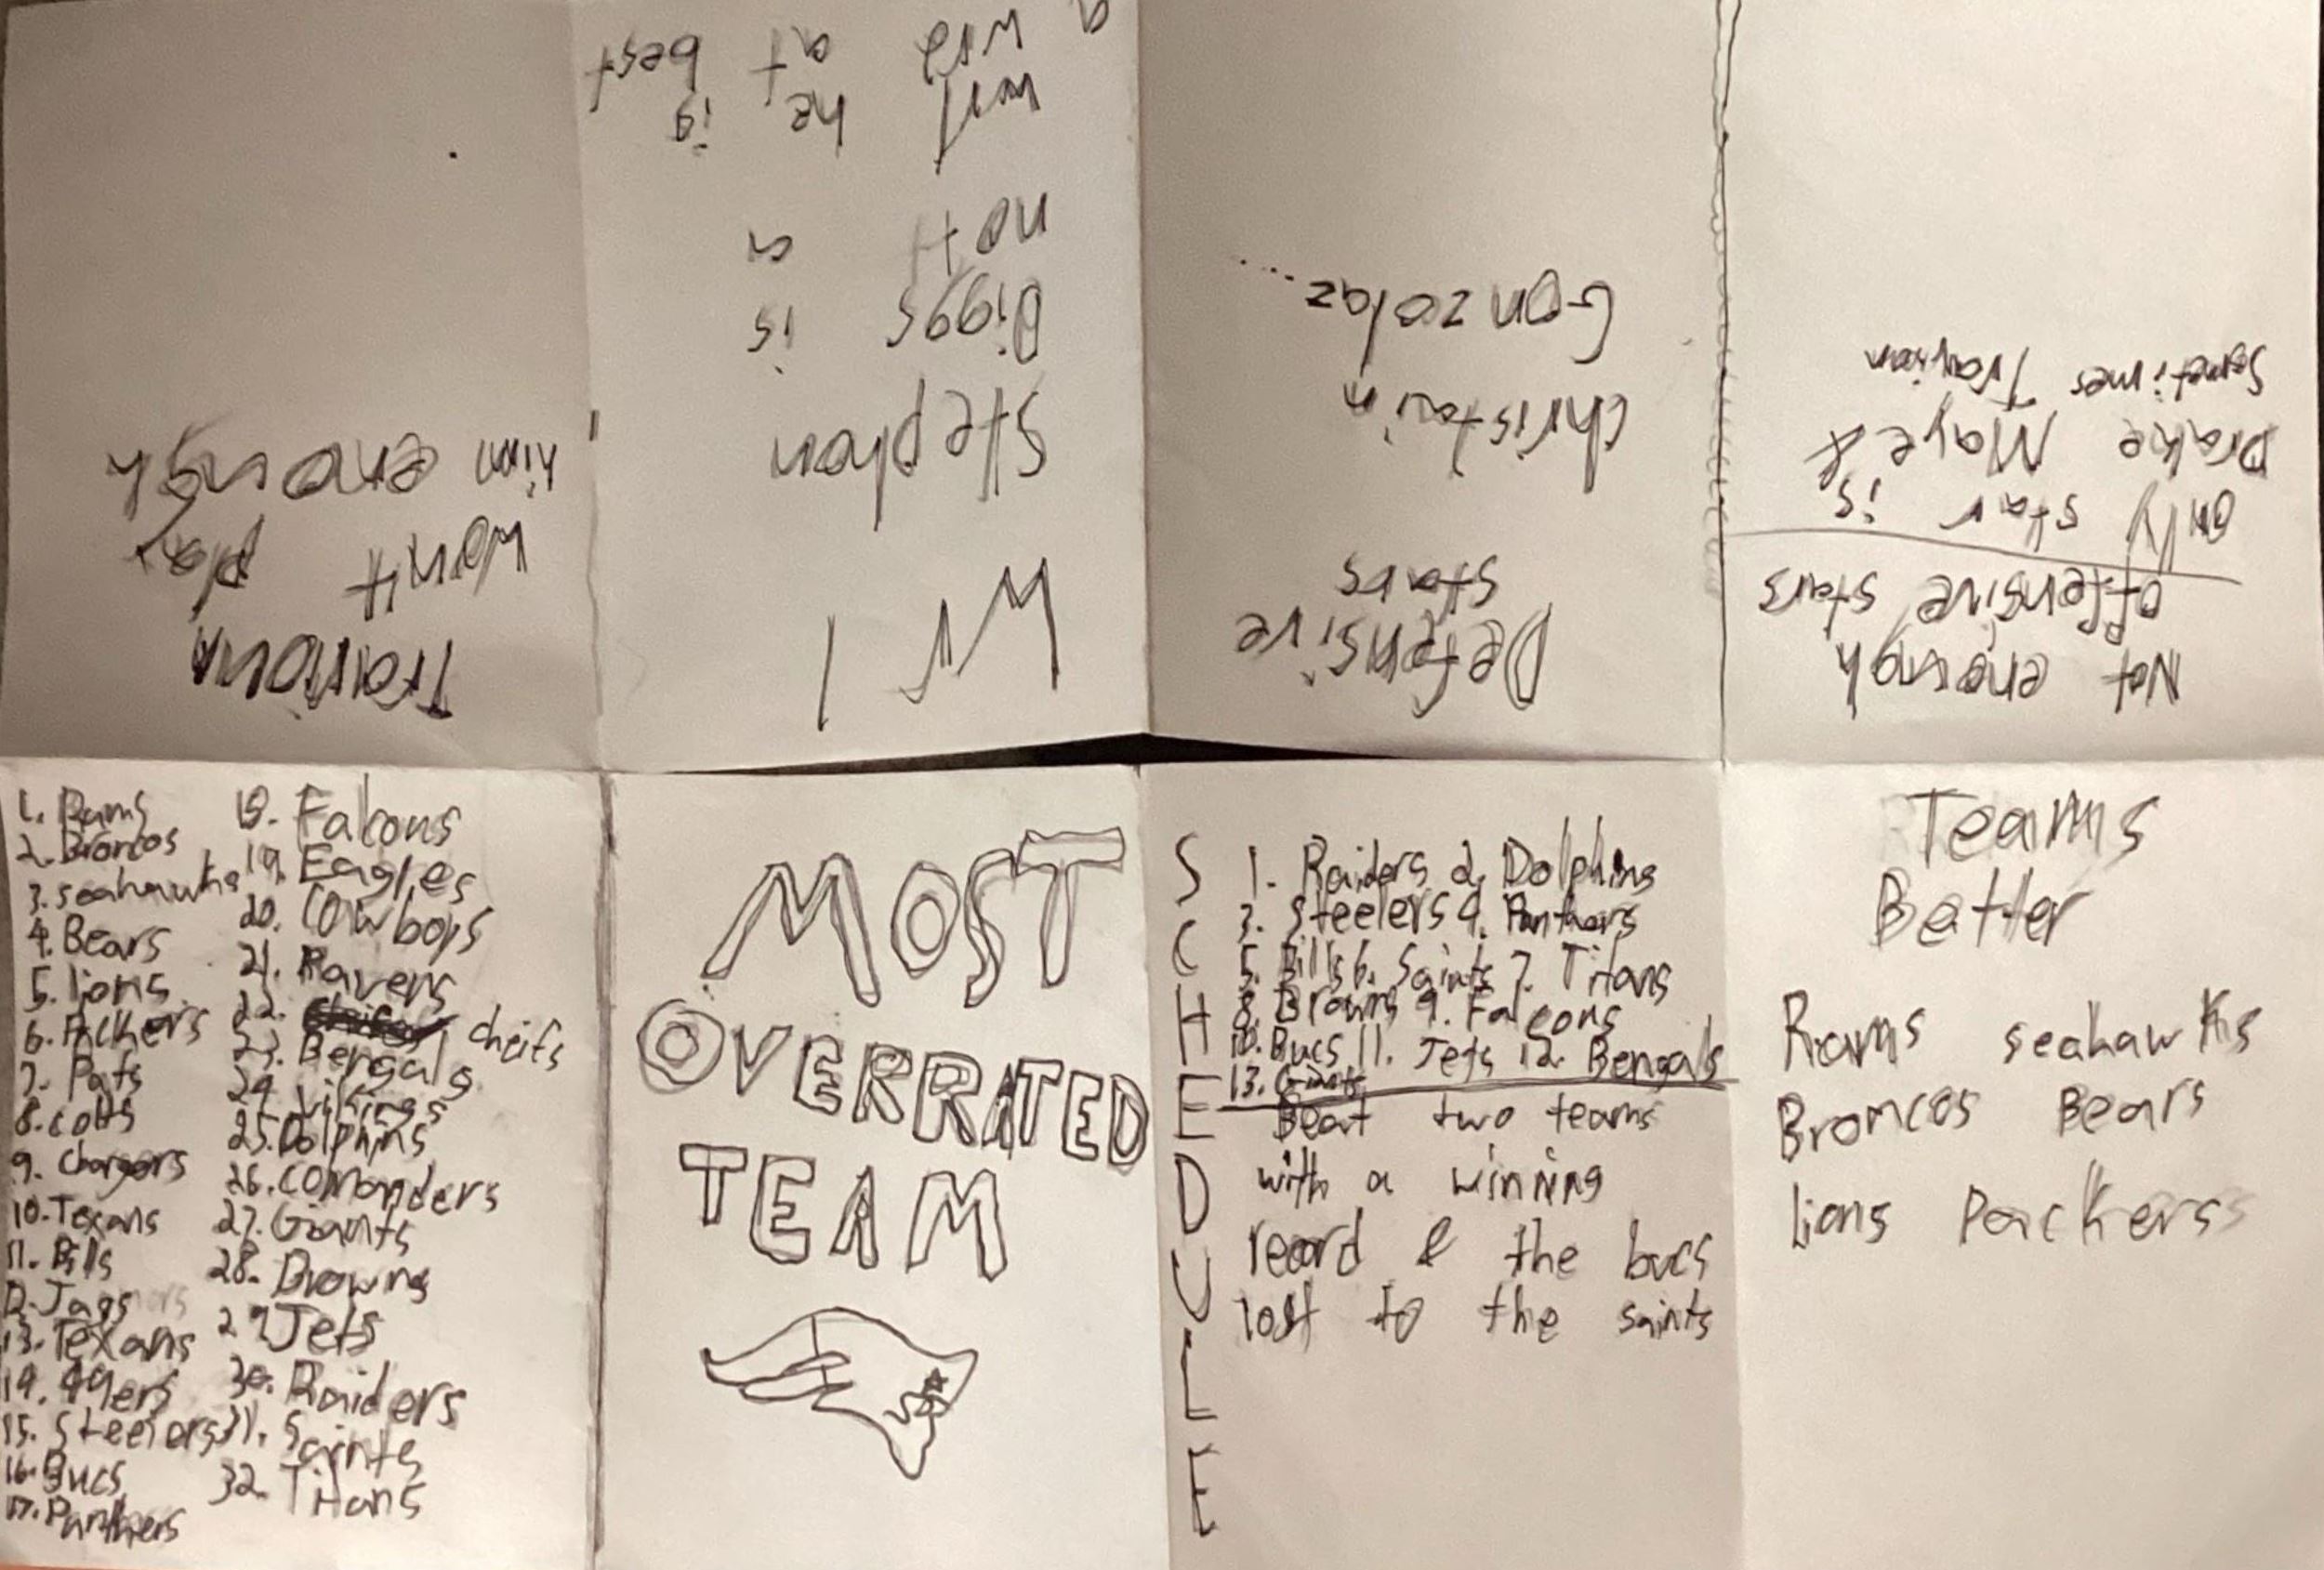 MOST
OVERRATED
TEAM
SCHEDULE
1. Raiders 2. Dolphins
3. Steelers 4. Panthers
5. Bills 6. Saints 7. Titans
8. Browns 9. Falcons
10. Bucs 11. Jets 12. Bengals
13. Giants
Beat two teams
with a winning
record & the bucs
lost to the saints
Teams
Better
Rams seahawks
Broncos Bears
lions Packers
Not enough
offensive stars
Only star is
Drake Maye &
Sometimes Travion
Defensive
stars
Christain
Gonzolaz....
Wr 1
Stephon
Diggs is
not a
wr1 he is
a wr2 at best
Traivion
won't play
him enough
1. Rams
2. Broncos
3. seahawks
4. Bears
5. lions
6. Packers
7. Pats
8. colts
9. Chargers
10. Texans
11. Bills
12. Jags
13. Texans
14. 49ers
15. Steelers
16. Bucs
17. Panthers
18. Falcons
19. Eagles
20. Cowboys
21. Ravens
22. cheifs
23. Bengals
24. vikings
25. Dolphins
26. Comanders
27. Giants
28. Browns
29 Jets
30. Raiders
31. Saints
32. Titans